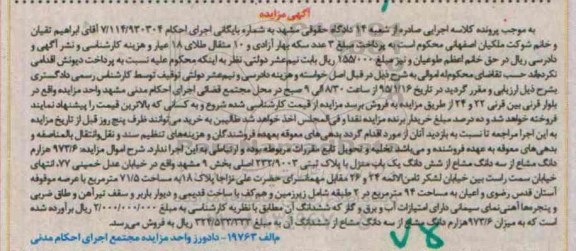 آگهی مزایده
به موجب پرونده کلاسه اجرایی صادره از شعبه ۱۲ دادگاه حقوقی مشهد به شماره بایگانی اجرای احکام ۷/۱۱۴/۹۳۰۳۰۴ آقای ابراهیم تقیان
و خانم شوکت ملکیان اصفهانی محکوم است به پرداخت مبلغ ۳ عدد سکه بهار آزادی و ۱۰ مثقال طلای ۱۸ عیار و هزینه کارشناسی و نشر آگهی و
دادرسی ریال در حق خانم اعظم طوعیان و نیز مبلغ ۱۵۵/۰۰۰ ریال بابت نیم‌عشر دولتی. نظر به اینکه محکوم علیه نسبت به پرداخت دیونش اقدامی
نکرده‌اند حسب تقاضای محکوم‌له اموالی به شرح ذیل در قبال اصل خواسته و هزینه دادرسی و نیم‌عشر دولتی توقیف توسط کارشناس رسمی دادگستری
بشرح ذیل ارزیابی و مقرر گردید در تاریخ ۹۵/۱/۱۶ از ساعت ۸/۳۰ الی ۹ صبح در محل مجتمع قضائی اجرای احکام مدنی مشهد واحد مزایده واقع در
بلوار قرنی بین قرنی ۲۲ و ۲۴ از طریق مزایده به فروش برسد مزایده از قیمت کارشناسی شده شروع و به کسانی که بالاترین قیمت را پیشنهاد نمایند
فروخته خواهد شد و ده درصد مبلغ خریدار برنده مزایده نقدا و فی‌المجلس اخذ خواهد شد طالبین به خرید می‌توانند ظرف پنج روز قبل از تاریخ مزایده
به این اجرا مراجعه تا نسبت به بازدید آنان از مورد اقدام گردد بدهی‌های معوقه بعهده فروشندگان و هزینه‌های تنظیم سند و نقل‌وانتقال بالمناصفه و
بدهی‌های معوقه به عهده فروشنده و می‌باشد تخلیه و تحویل تابع مقررات مربوطه بوده و ارتباطی به این اجرا ندارد. شرح اموال مزایده: ۹۷۳/۶ هزارم
دانگ مشاع از سه دانگ مشاع از شش دانگ یک باب منزل با پلاک ثبتی ۲۳۲/۹۰۰۳ اصلی بخش ۹ مشهد واقع در خیابان عدل خمینی ۷۷، انتهای
خیابان سمت راست بین خیابان لشکر ثامن‌الائمه ۲۴ و ۲۶ مقابل مهمانسرای حضرت علی‌نژاجا پلاک ۱۸ به مساحت ۷۱/۵ مترمربع با عرصه موقوفه
آستان قدس رضوی و اعیان به مساحت ۹۴ مترمربع در ۲ طبقه شامل زیرزمین و هم‌کف با ساخت قدیمی و دیوار باربر و سقف تیرآهن و طاق ضربی
و پنجره‌ها آهنی‌نمای سیمانی دارای امتیازات آب و برق و گاز که ششدانگ آن مطابق با نظریه کارشناسی به مبلغ ۲/۰۰۰/۰۰۰/۰۰۰ ریال برآورده شده
است که به میزان ۹۷۳/۶ هزارم دانگ مشاع از سه دانگ مشاع از ششدانگ آن به مبلغ ۳۲۴/۵۳۳/۳۳۳ ریال به فروش می‌رسد.
م‌الف ۱۹۷۶۳- دادورز واحد مزایده مجتمع اجرای احکام مدنی